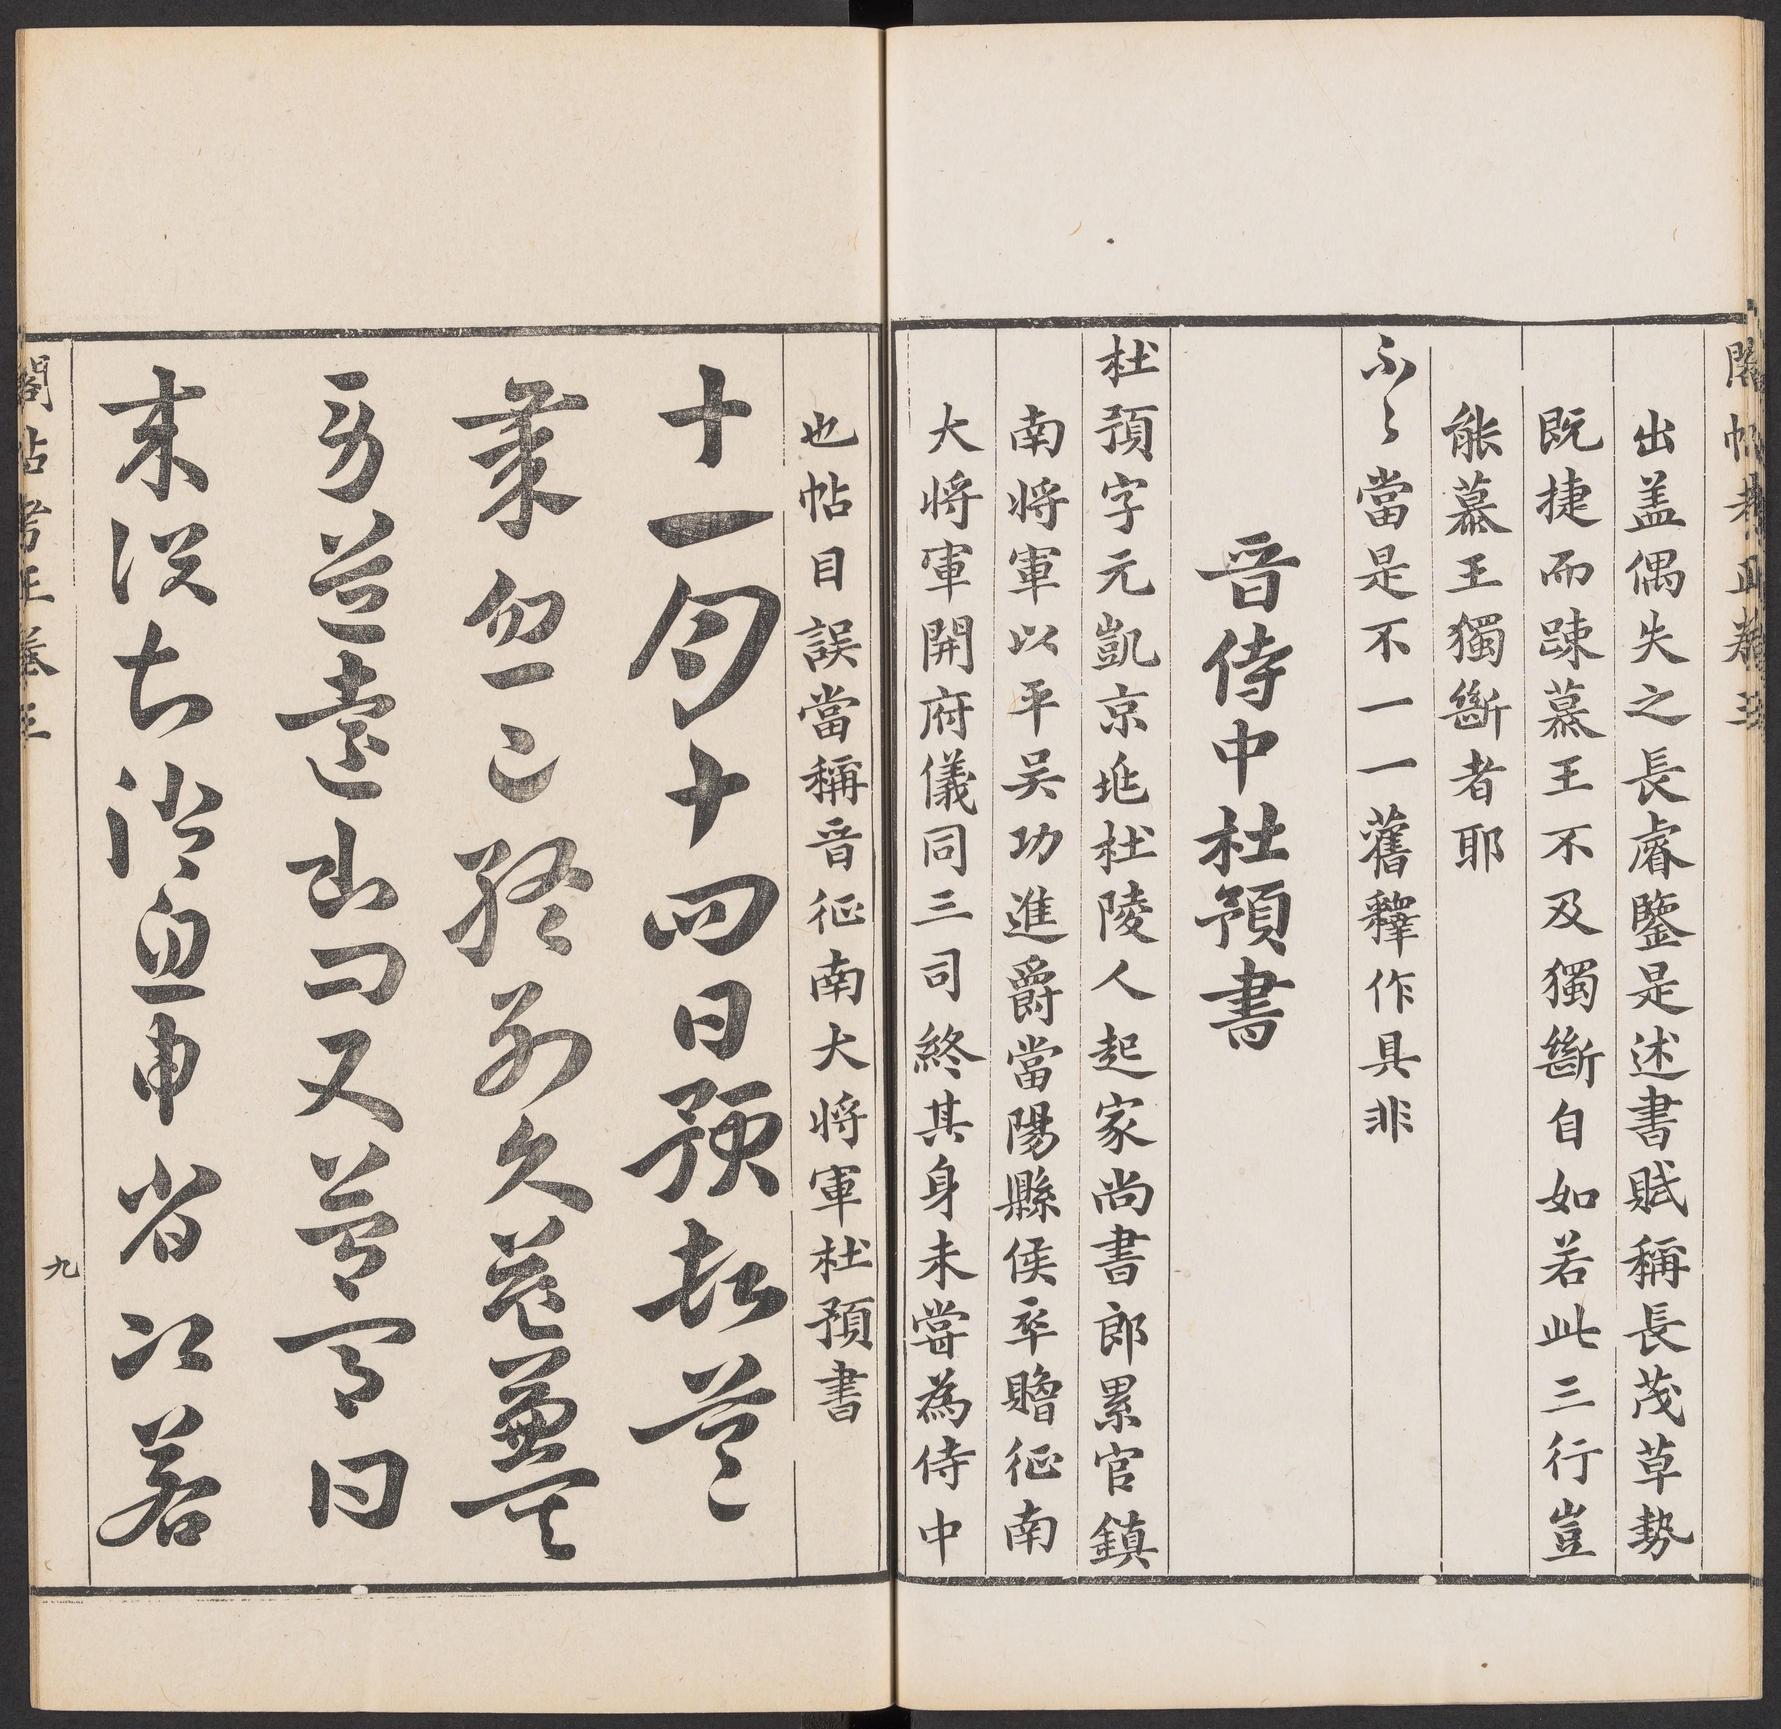 出盖偶失之長睿鑒是述書賦稱長茂草勢
既捷而踈慕王不及獨斷自如若此三行豈
能慕王獨斷者耶
當是不一一舊釋作具非
晉侍中杜預書
杜預字元凱京兆杜陵人起家尚書郎累官鎮
南將軍以平吳功進爵當陽縣侯卒贈征南
大將軍開府儀同三司終其身未嘗為侍中
也帖目誤當稱晉征南大將軍杜預書
十一月十四日預頓首
歲忽已終別久益兼其
勞道遠書問又簡間
來說知消息申省次若
閣帖考正卷三
九